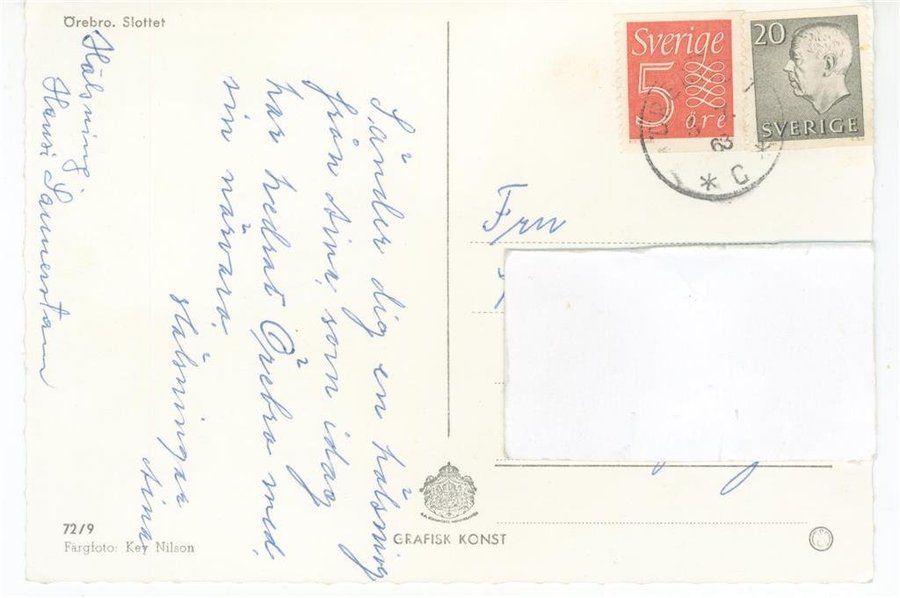 Örebro. Slottet
Sänder dig en hälsning
från Aina, som idag
har hedrat Örebro med
sin närvaro.
Hälsningar
Aina
Hälsning
Hansi
Sverige
5
öre
20
SVERIGE
63
* C *
Fru
GRAFISK KONST
72/9
Färgfoto: Key Nilson